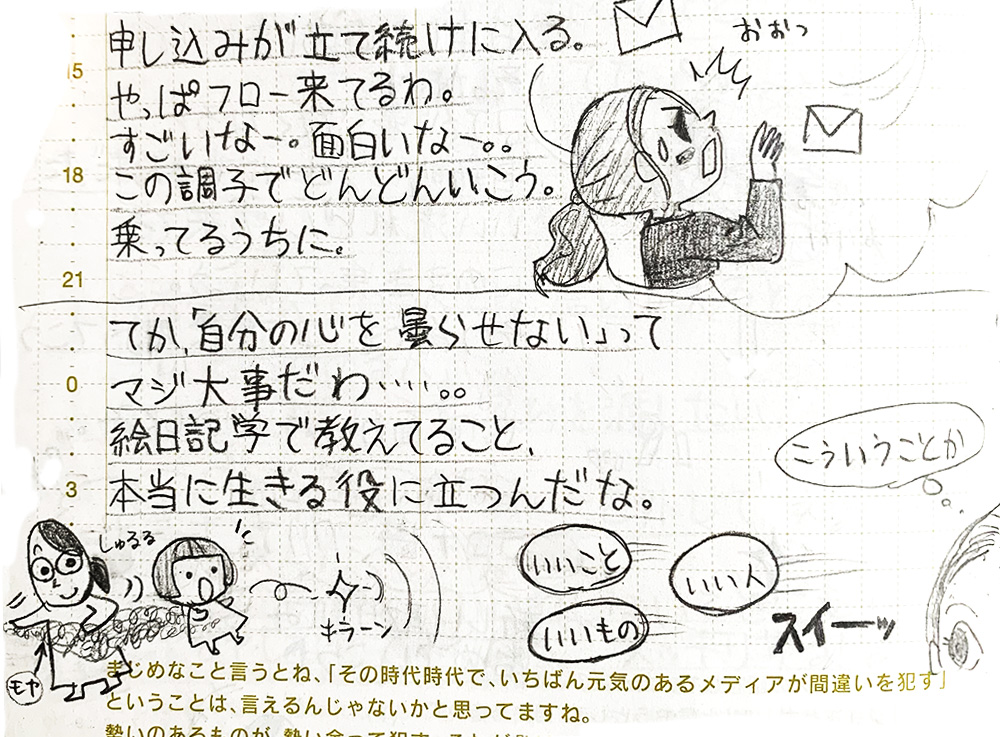 申し込みが立て続けに入る。
やっぱフロー来てるわ。
すごいなー。面白いなー。。
この調子でどんどんいこう。
乗ってるうちに。
おおっ
15
18
21
てか、「自分の心を曇らせない」って
マジ大事だわ……。。
絵日記学で教えてること、
本当に生きる役に立つんだな。
0
3
こういうことか
しゅるる
モヤ
キラーン
いいこと
いい人
いいもの
スイーッ
まじめなこと言うとね、「その時代時代で、いちばん元気のあるメディアが間違いを犯す」
ということは、言えるんじゃないかと思ってますね。